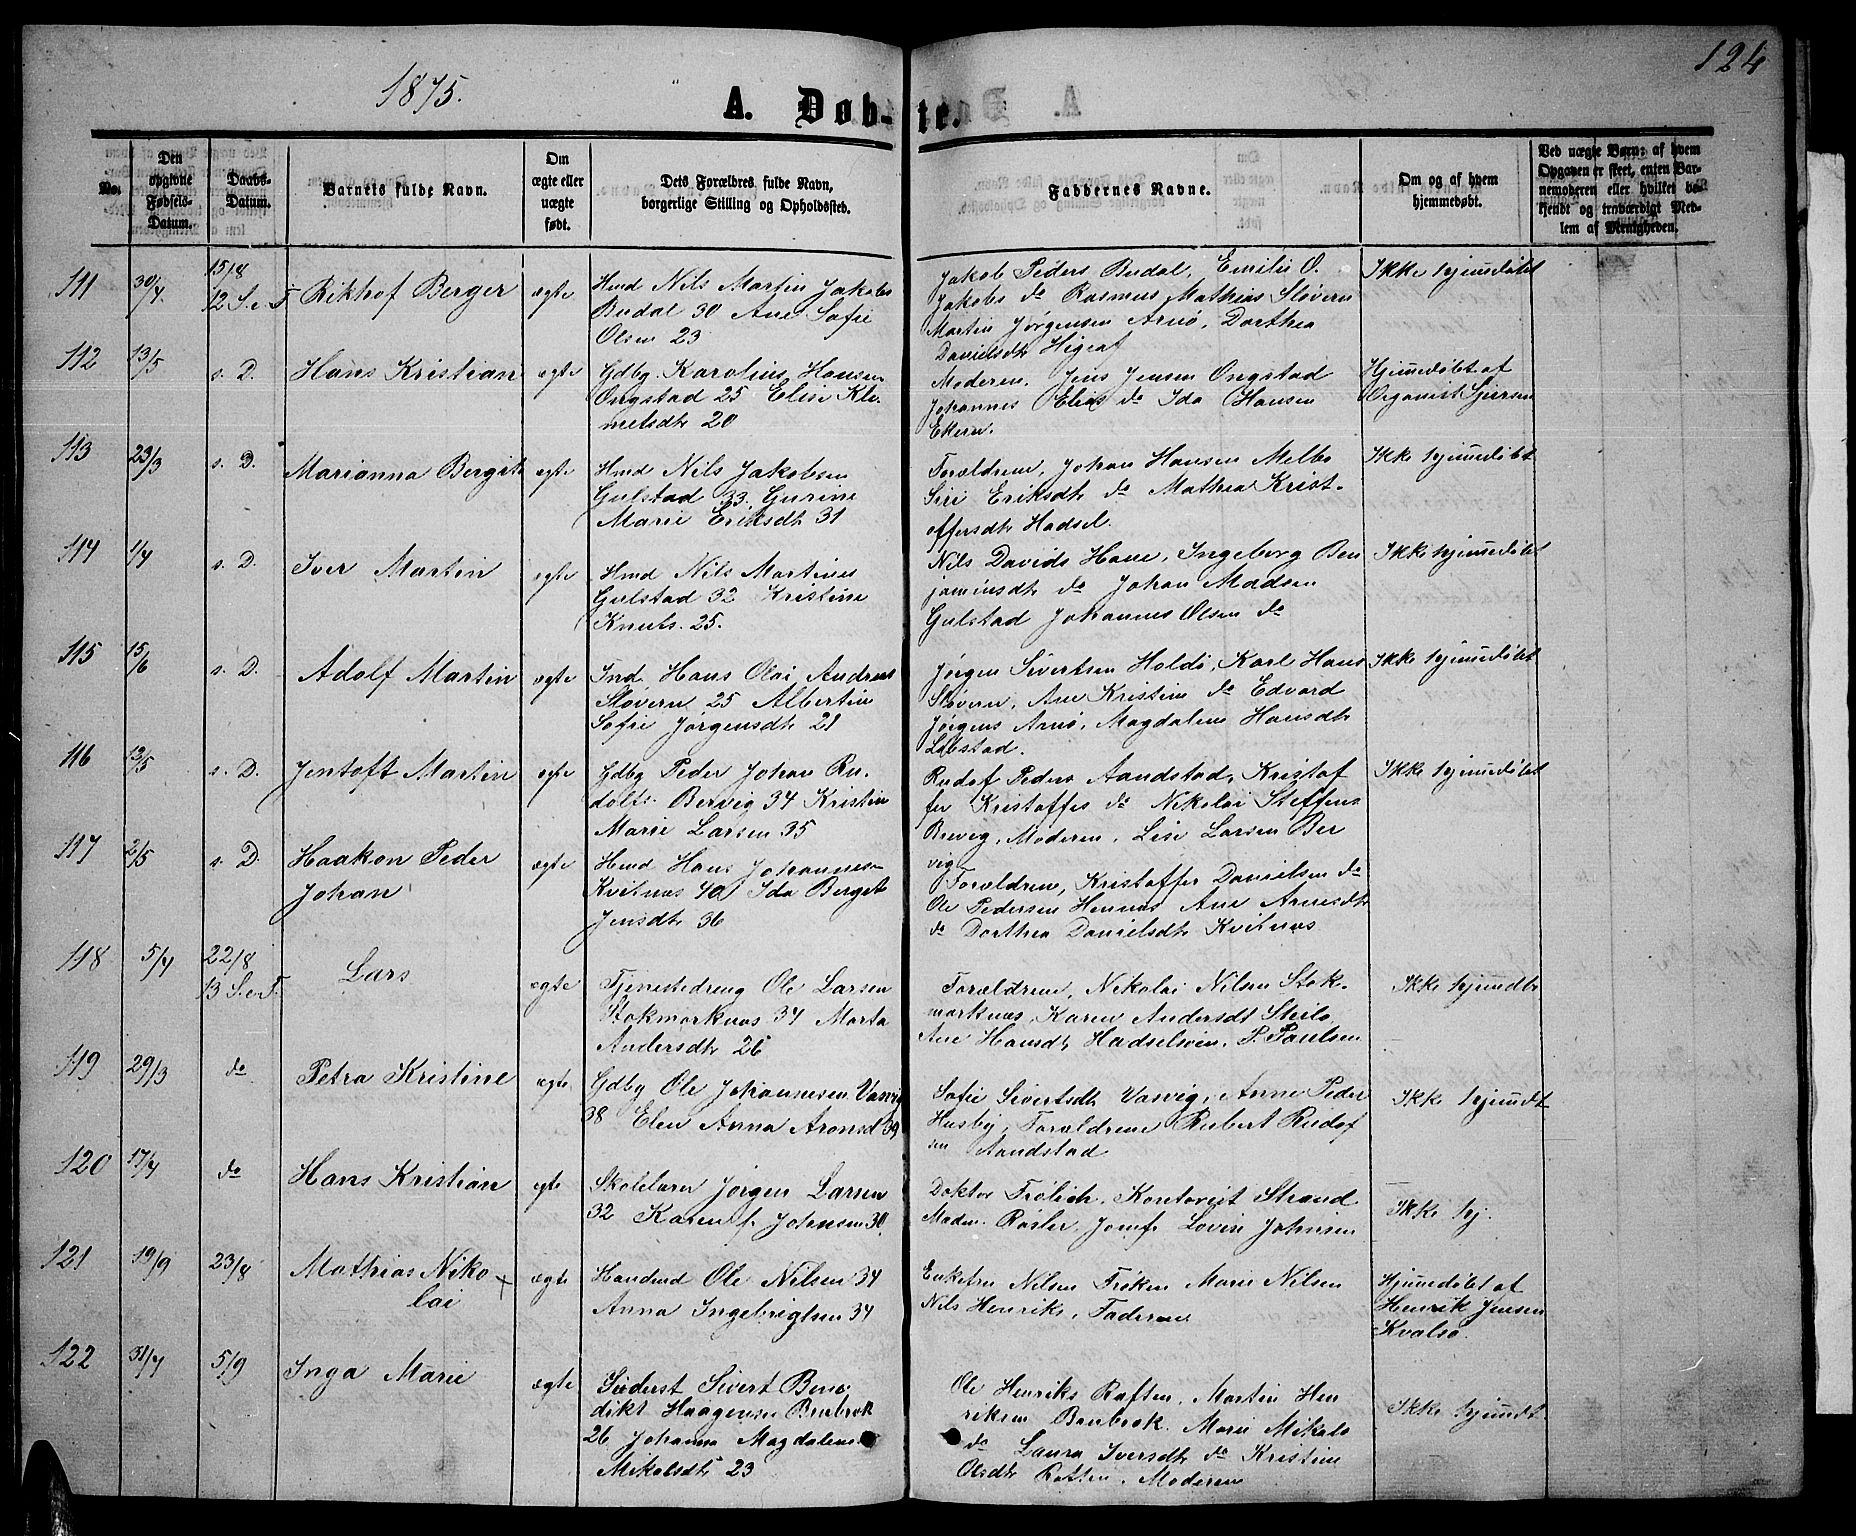 1875.
124
A. Døb-te.
No.
Den opgivne Fødsels-Datum.
Daabs-Datum.
Barnets fulde Navn.
Om ægte eller uægte født.
Dets Forældres fulde Navn, borgerlige Stilling og Opholdssted.
Faddernes Navne.
Om og af hvem hjemmedøbt.
Ved uægte Børn: af hvem Opgaven er skeet, enten Barnemoderen eller hvilket bekjendt og troværdigt Medlem af Menigheden.
111 30/4 15/8 12 S. e. T Rikhof Berger ægte
Hmd Nils Martin Jakobs
Budal 30 Ane Sofie
Olsen 23
Jakob Peders Budal, Emilie O.
Jakobs do Rasmus Mathias Sløvern
Martin Jørgensen Arnø, Dorthea
Danielsdtr
Ikke hjemedøbt
112 13/5 s. D. Hans Kristian ægte
Gdbg. Karolius Hansen
Ongstad 25 Elise Kle-
metsdtr 20
Moderen, Jens Jensen Ongstad
Johannes Elias do Ida Hansen
Ekern.
Hjemedøbt af
Organist
113 23/3 s. D. Marianna Bergit ægte
Hmd Nils Jakobsen
Gulstad 33 Gurine
Marie Eriksdtr 31
Forældrene, Johan Hansen Melbo
Siri Eriksdtr do Mathea Krist-
offersdtr Hadsel.
Ikke hjemedøbt
114 1/4 s. D. Iver Martin ægte
Hmd Nils Martines
Gulstad 32 Kristine
Knuts. 25.
Nils Davids Hane, Ingeborg Ben
jaminsdtr do Johan Madsen
Gulstad Johannes Olsen do
Ikke hjemedøbt
115 15/6 s. D. Adolf Martin ægte
Ind. Hans Olai Andreas
Sløvern 25 Albertine
Sofie Jørgensdtr 21
Jørgen Sivertsen Holdø, Karl Hans
Sløvern, Ane Kristine do Edvard
Jørgens Arnø, Magdalene Hansdtr
Løbstad.
Ikke hjemedøbt
116 13/5 s. D. Jentoft Martin ægte
Gdbg Peder Johan Ru-
dolfs. Bervig 34 Kristine
Marie Larsen 35
Rudof Peders Aandstad, Kristof
fer Kristoffes do Nikolai Steffens
Brevig, Moderen, Lise Larsen Ber
vig
Ikke hjemedøbt
117 2/5 s. D. Haakon Peder
Johan ægte
Hmd Hans Johannes-
Kvitnæs 40 Ida Berget
Jensdtr 36
Forældrene, Kristoffer Danielsen do
Ole Pedersen Hennes Ane Arnesdtr
do Dorthea Danielsdtr Kvitnæs
118 5/4 22/8 13 S. e. T. Lars ægte
Tjenestedreng Ole Larsen
Stokmarknæs 34 Marta
Andersdtr 26
Forældrene, Nikolai Nilsen Stok-
marknæs, Karen Andersdt Steilo
Ane Hansdtr Hadseløien, P. Paulsen
Ikke hjemdb
119 29/3 do Petra Kristine ægte
Gdbg Ole Johannesen Vasvig
38 Elen Anna Aronsd 39
Sofie Sivertsdtr Vasvig, Anne Peder
Husby, Forældrene Rubert Rudof
sen Aandstad
Ikke hjemdt
120 17/4 do Hans Kristian ægte
Skolelærer Jørgen Larsen
32 Karen f. Johnsen 30
Doktor Frølich, Kontorist Strand
Madm. Røsler, Jomf. Lovise Johnsen
Ikke hj.
121 19/9 23/8 Mathias Niko
lai + ægte
Handmd Ole Nilsen 34
Anna Ingebrigtsen 34
Enkefru Nilsen Frøken Marie Nilsen
Nils Henriks, Faderen
Hjemedøbt af
Henrik Jensen
Kvalsø.
122 31/4 5/9 Inga Marie ægte
Sivert Bene-
dikt Haagensen
26 Johanna Magdalene
Mikalsdtr 23
Ole Henriks Raften, Martin Hen
riksen Brubrok, Marie Mikals
do Laura Iversdtr do Kristine
Olsdtr Raften, Moderen
Ikke hjemdt